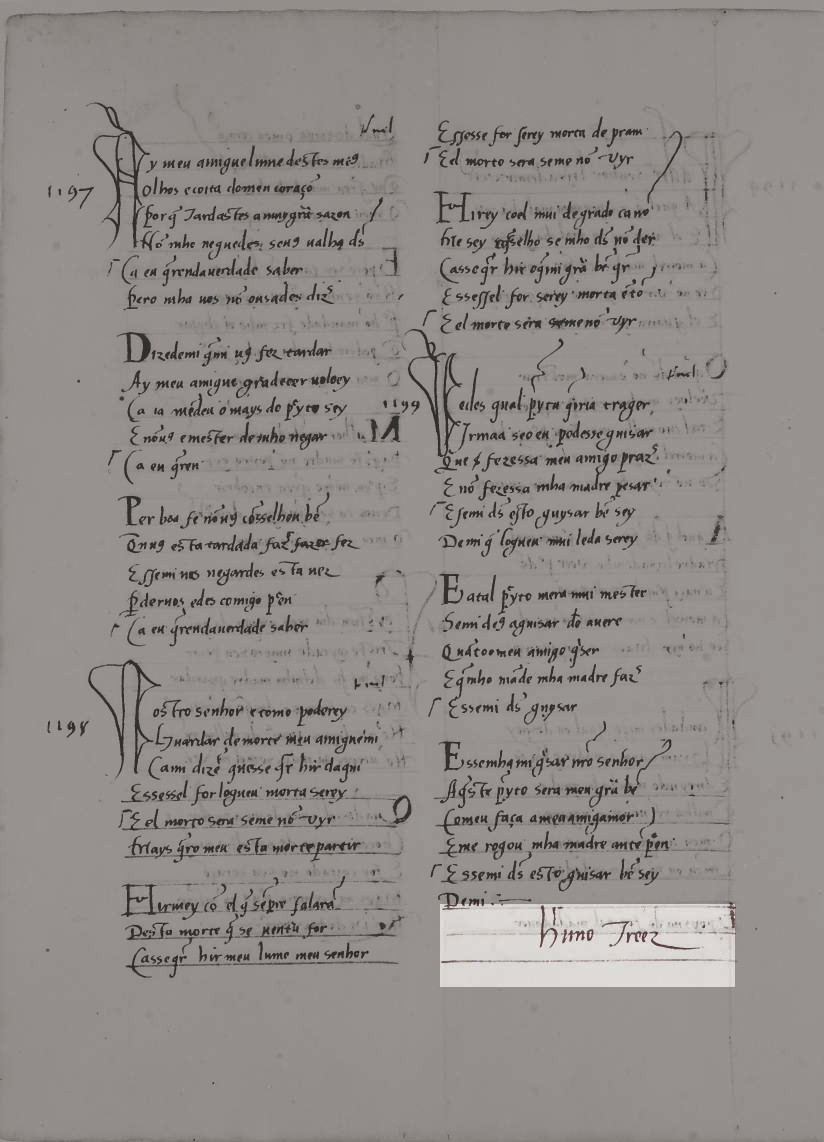 1197
Ay meu amigue lume destes me9
Olhos e coita do meu coraçõ
Por q̃ Tardastes a muy grã sazon
Nõ mho neguedes, se u9 ualha ds̃
Ca eu q̃renda uerdade saber
Pero mha uos nõ ousades diz̃
Dizede mi q̃m u9 fez tardar
Ay meu amigue
Ca ia
E nõ u9 e mester de mho negar
Ca eu q̃ren
Per boa fe nõ u9 cõsselhou bẽ
Q̃n u9 esta tardada faz̃ fez
E sse mi uos negardes esta uez
p̃der uos edes comigo p̃en
Ca eu q̃renda uerdade saber
1198
Nostro senhor e como poderey
Guardar de morte meu amigu e mi
Ca mi dizẽ que sse q̃r hir daqui
E sse ssel for logu eu morta serey
E el morto sera se me nõ uyr
Mays q̃ro meu esta morte partir
Hir mey cõ el q̃ sẽpre falarã
Desta morte q̃ se uentu for
Ca sse q̃r hir meu lume meu senhor
E sse sse for serey morta de pram
E el morto sera se me nõ uyr
Hirey co el mui de grado ca nõ
mho ds̃ nõ der
Ca sse q̃r hir o q̃ mi grã bẽ q̃r
E sse ssel for serey morta ẽtõ
E el morto sera se me nõ uyr
1199
Vedes qual p̃yto q̃ria trager
Irmaa se o eu podesse guisar
Que fezess a meu amigo praz̃
E nõ fezess a mha madre pesar
E se mi ds̃ esto guysar bẽ sey
De mi q̃ logu eu mui leda serey
E a tal p̃yto mera mui mester
Se mi de9 aguisar do auer e
Quãto meu amigo q̃ser
E q̃ mho mãde mha madre faz̃
E sse mi ds̃ guysar
E sse mha mi guisar nr̃o senhor
Aq̃ste p̃yto sera meu grã bẽ
Com eu faça amea amig amor
E me rogou mha madre ante p̃en
E sse mi ds̃ esto guisar bẽ sey
De mi
Nuno Treez